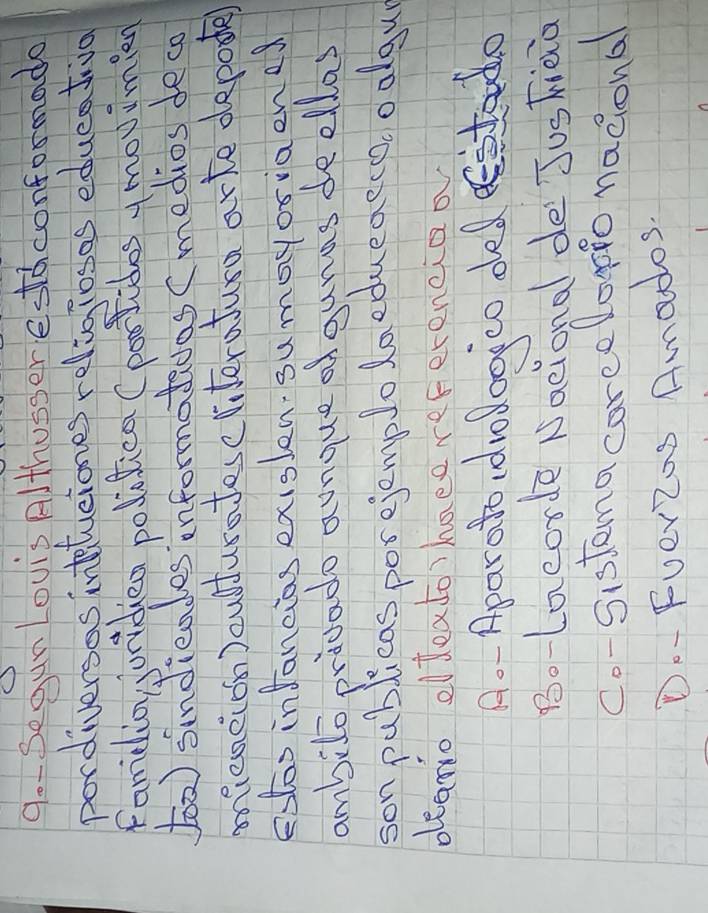 9.- Segun Louis Althusser esta conformado
por diversas intituciones religiosas educativa
Familia, juridica politica (partidos y movimien
tos) sindicales informativas (medios de co
micación) culturales (literatura arte deporte)
Estas intancias existen. su mayoria en el
ambito privado aunque algunas de ellas
son publicas por ejemplo la educacio, o algun
diario el texto hace referencia a
A.- Aparato idiologico del Estado
B.- La corte Nacional de Justicia
C.- Sistema carcelario nacional
D.- Fuerzas Amados.